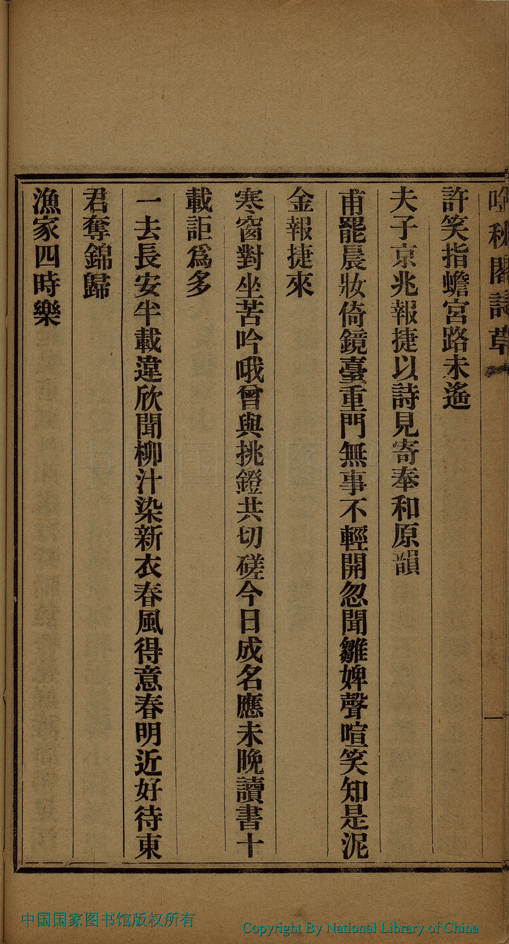 吟秋閣詩草
一
許笑指蟾宮路未遙
夫子京兆報捷以詩見寄奉和原韻
甫罷晨妝倚鏡臺重門無事不輕開忽聞雛婢聲喧笑知是泥
金報捷來
寒窗對坐苦吟哦曾與挑鐙共切磋今日成名應未晚讀書十
載詎爲多
一去長安半載違欣聞柳汁染新衣春風得意春明近好待東
君奪錦歸
漁家四時樂
中国国家图书馆版权所有
Copyright By National Library of China